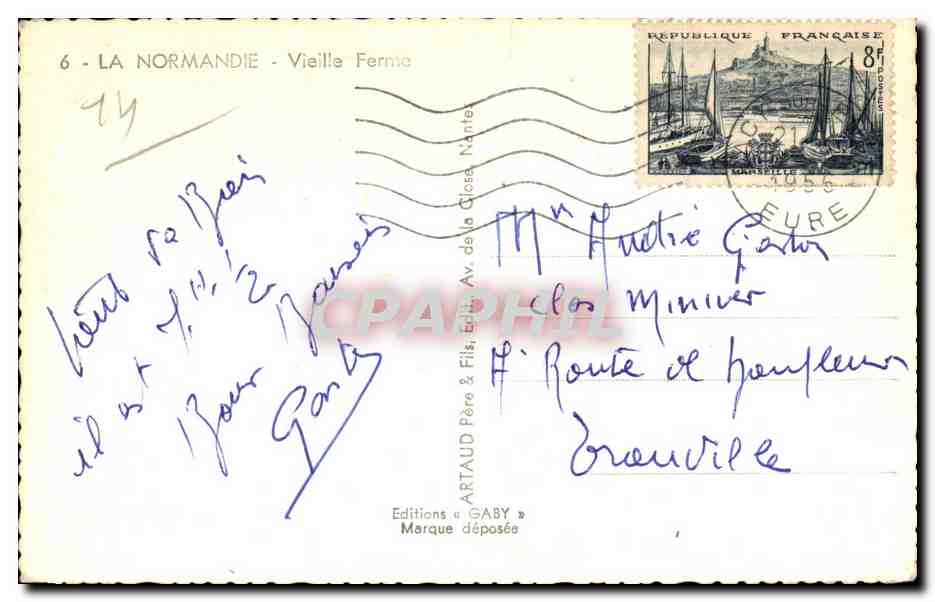 6 - LA NORMANDIE - Vieille Ferme
14
il est
Bons Baisers
Gaston
ARTAUD Père & Fils, Edit., Av. de la Close, Nantes
Editions « GABY »
Marque déposée
REPUBLIQUE FRANÇAISE
8F
POSTES
MARSEILLE
21
1955
EURE
Mr André Gaston
clos Minivier
7 Route de Honfleur
Trouville
CPAPHIL